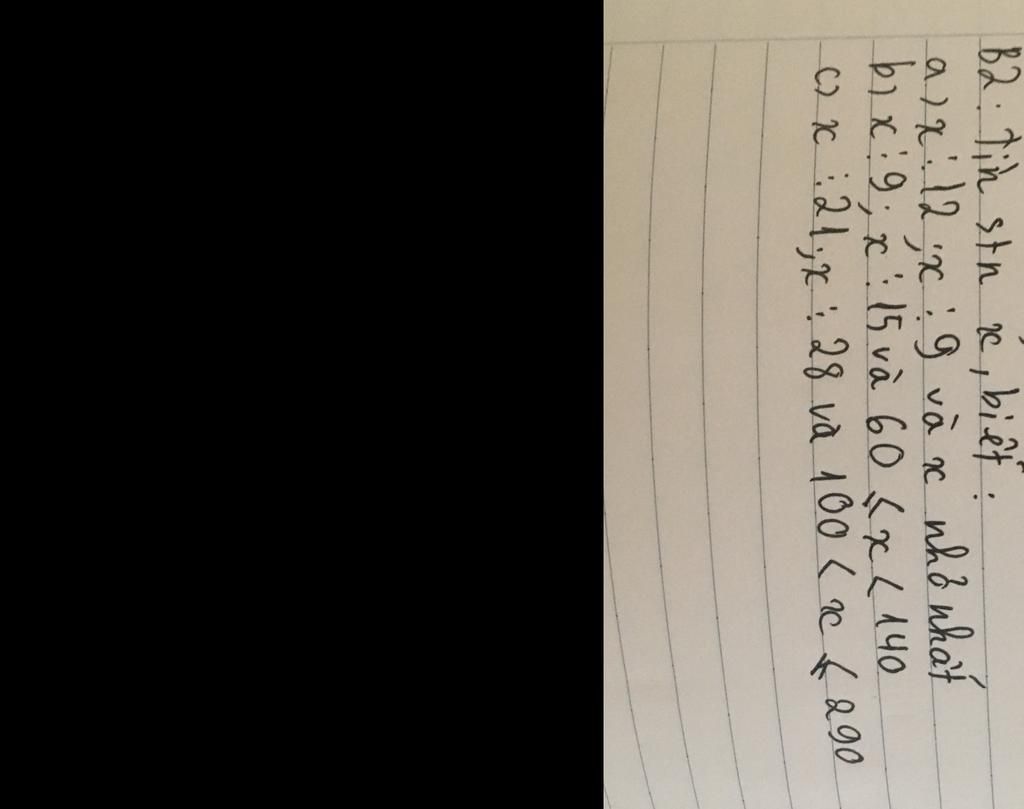 B2. Tìm stn x, biết :
a) x ⋮ 12 ; x ⋮ 9 và x nhỏ nhất
b) x ⋮ 9 ; x ⋮ 15 và 60 ≤ x < 140
c) x ⋮ 21 ; x ⋮ 28 và 100 < x ≤ 290